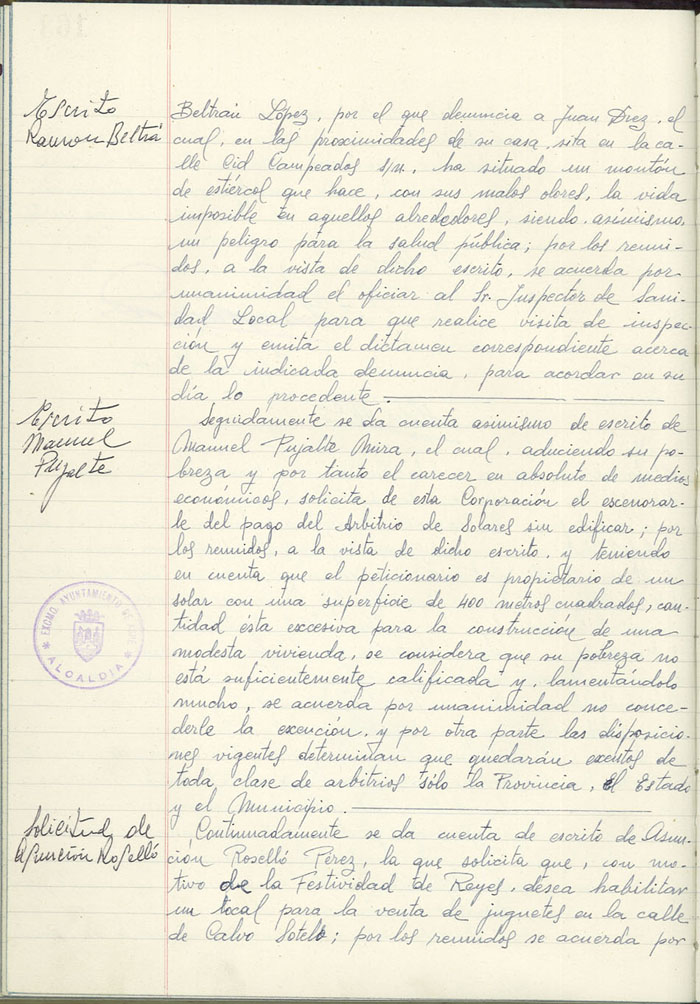 Escrito
Ramon Beltrá
Beltrán López, por el que denuncia a Juan Drez, el
cual, en las proximidades de su casa, sita en la ca-
lle Cid Campeados s/n., ha situado un montón
de estiércol que hace, con sus malos olores, la vida
imposible en aquellos alrededores, siendo, asimismo,
un peligro para la salud pública; por los reuni-
dos, a la vista de dicho escrito, se acuerda por
unanimidad el oficiar al Sr. Inspector de Sani-
dad Local para que realice visita de inspec-
ción y emita el dictamen correspondiente acerca
de la indicada denuncia, para acordar en su
día, lo procedente.
Escrito
Manuel
Pujalte
Seguidamente se da cuenta asimismo de escrito de
Manuel Pujalte Mira, el cual, aduciendo su po-
breza y por tanto el carecer en absoluto de medios
económicos, solicita de esta Corporación el escenorar-
le del pago del Arbitrio de Solares sin edificar; por
los reunidos, a la vista de dicho escrito, y teniendo
en cuenta que el peticionario es propietario de un
solar con una superficie de 400 metros cuadrados, can-
tidad ésta excesiva para la construcción de una
modesta vivienda, se considera que su pobreza no
está suficientemente calificada y, lamentándolo
mucho, se acuerda por unanimidad no conce-
derle la exención, y por otra parte las disposicio-
nes vigentes determinan que quedarán exentos de
toda clase de arbitrios sólo la Provincia, el Estado
y el Municipio.
EXCMO. AYUNTAMIENTO DE
ALCALDIA
Solicitud de
Asunción Roselló
Continuadamente se da cuenta de escrito de Asun-
ción Roselló Pérez, la que solicita que, con mo-
tivo de la Festividad de Reyes, desea habilitar
un local para la venta de juguetes en la calle
de Calvo Sotelo; por los reunidos se acuerda por